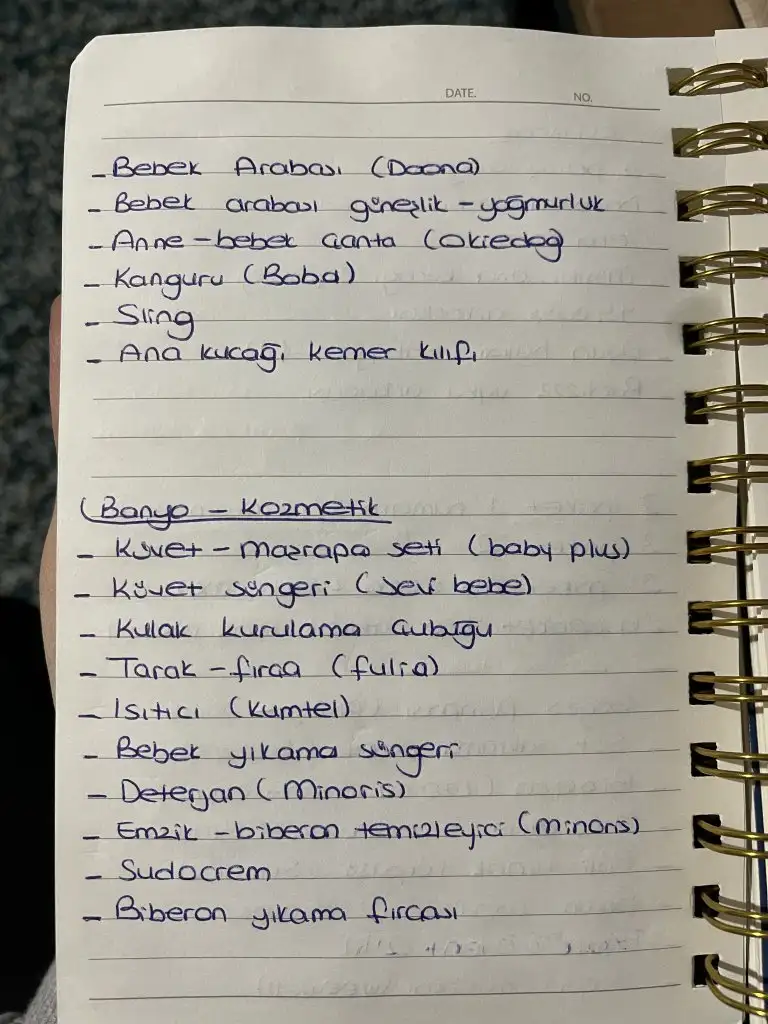 DATE.
NO.
- Bebek Arabası (Doona)
- Bebek arabası güneşlik - yoğmurluk
- Anne - bebek çanta (Okiedog)
- Kanguru (Boba)
- Sling
- Ana kucağı kemer kılıfı
Banyo - Kozmetik
- Küvet - maşrapa seti (baby plus)
- Küvet süngeri (sevi bebe)
- Kulak kurulama çubuğu
- Tarak - fırça (fulia)
- Isıtıcı (Kumtel)
- Bebek yıkama süngeri
- Deterjan (Minoris)
- Emzik - biberon temizleyici (minoris)
- Sudocrem
- Biberon yıkama fırçası